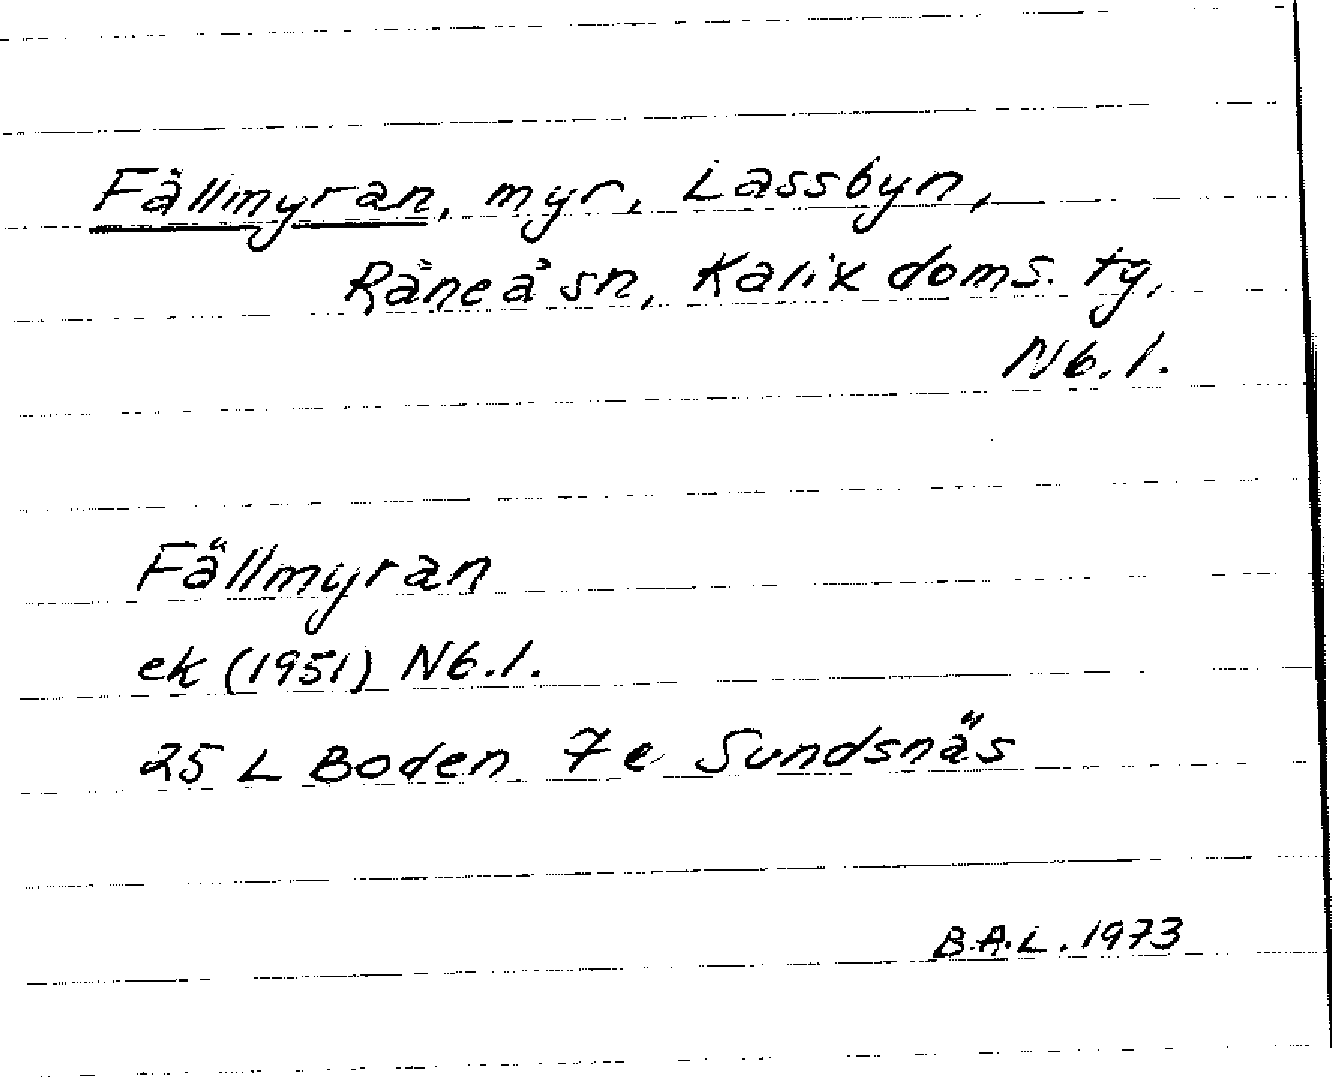 Fällmyran, myr, Lassbyn,
Råneå sn, Kalix doms. tg,
Nb. l.
Fällmyran
ek (1951) Nb. l.
25 L Boden 7e Sundsnäs
B.A.L. 1973